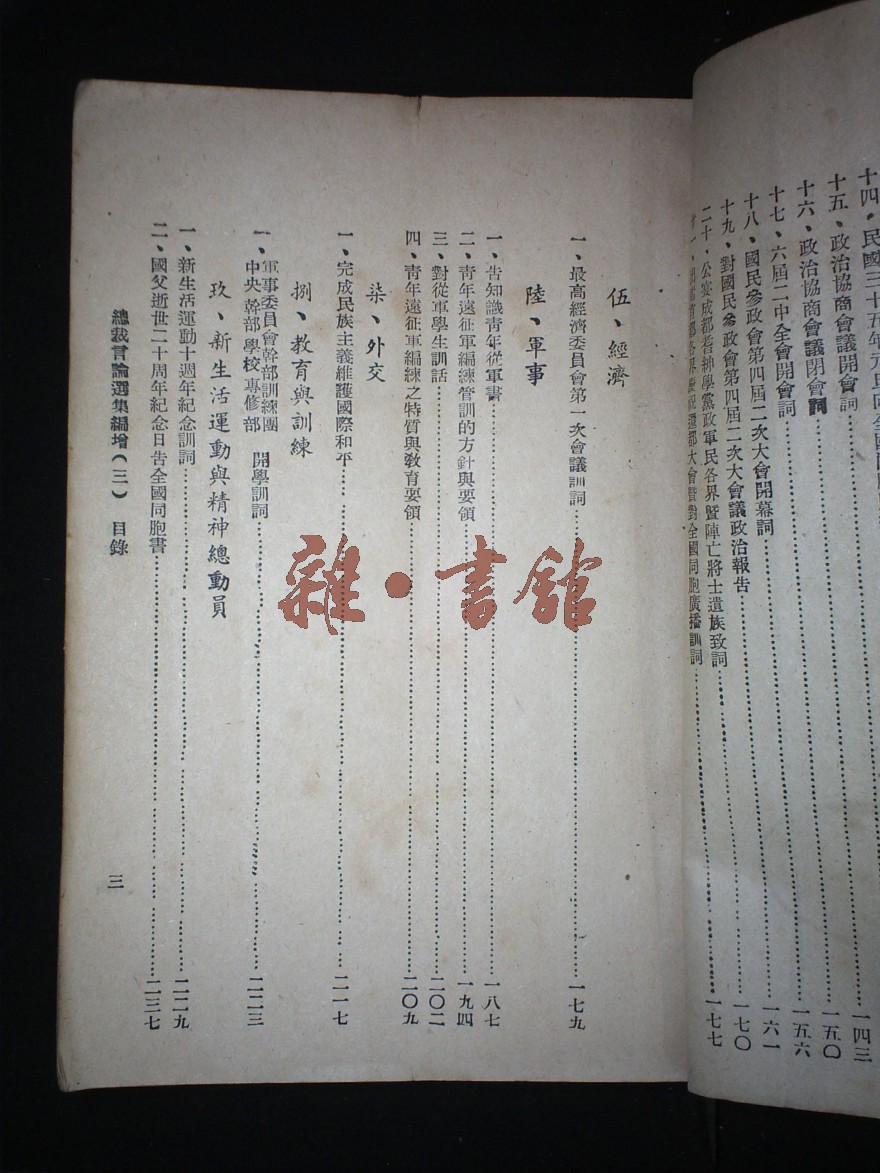 十五、政治協商會議開會詞……一四三
十六、政治協商會議閉會詞……一五〇
十七、六屆二中全會開會詞……一五六
十八、國民參政會第四屆二次大會開幕詞……一六一
十九、對國民參政會第四屆二次大會議政治報告……一七〇
二十、公宴成都耆紳學黨政軍民各界暨陣亡將士遺族致詞……一七七
伍、經濟
一、最高經濟委員會第一次會議訓詞……一七九
陸、軍事
一、告知識青年從軍書……一八七
二、青年遠征軍編練管訓的方針與要領……一九四
三、對從軍學生訓話……二〇二
四、青年遠征軍編練之特質與教育要領……二〇九
柒、外交
一、完成民族主義維護國際和平……二一七
捌、教育與訓練
一、軍事委員會幹部訓練團
中央幹部學校專修部 開學訓詞……二二三
玖、新生活運動與精神總動員
一、新生活運動十週年紀念訓詞……二二九
二、國父逝世二十周年紀念日告全國同胞書……二三七
總裁言論選集編增(三) 目錄
三
雜·書館